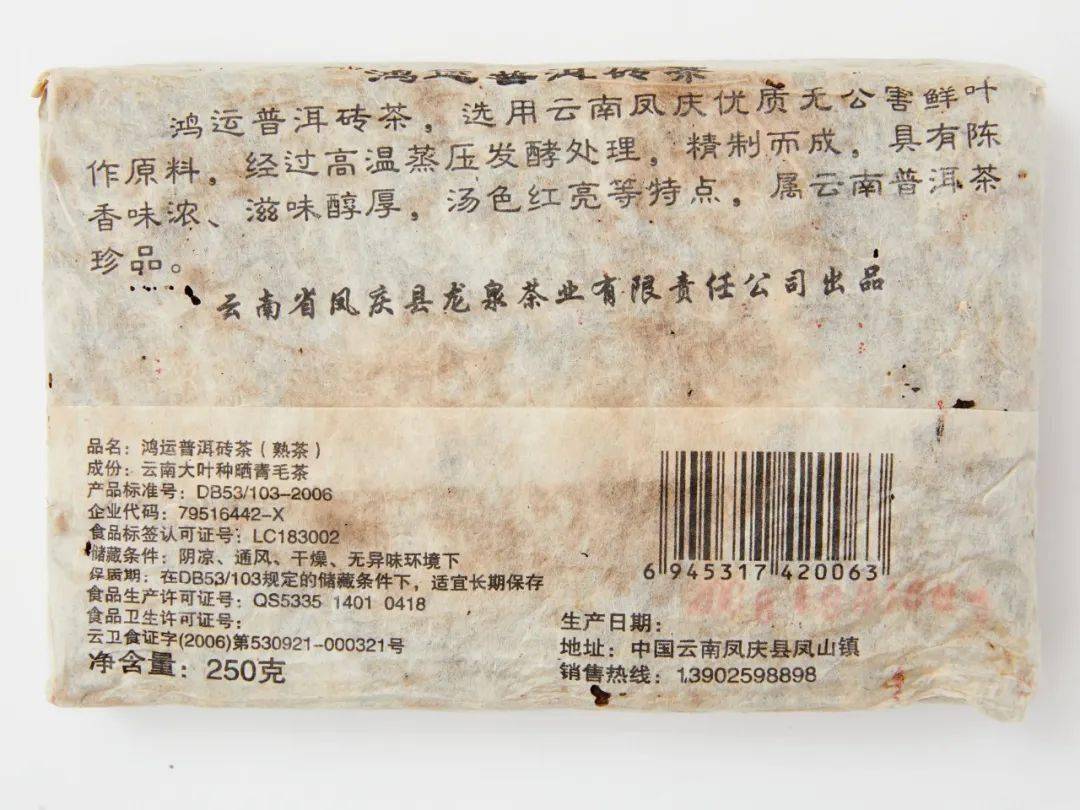 鸿运普洱砖茶
鸿运普洱砖茶，选用云南凤庆优质无公害鲜叶
作原料，经过高温蒸压发酵处理，精制而成，具有陈
香味浓、滋味醇厚，汤色红亮等特点，属云南普洱茶
珍品。
云南省凤庆县龙泉茶业有限责任公司出品
品名：鸿运普洱砖茶（熟茶）
成份：云南大叶种晒青毛茶
产品标准号：DB53/103-2006
企业代码：79516442-X
食品标签认可证号：LC183002
储藏条件：阴凉、通风、干燥、无异味环境下
保质期：在DB53/103规定的储藏条件下，适宜长期保存
食品生产许可证号：QS5335 1401 0418
食品卫生许可证号：
云卫食证字(2006)第530921-000321号
净含量：250克
6 945317 420063
生产日期：
地址：中国云南凤庆县凤山镇
销售热线：13902598898